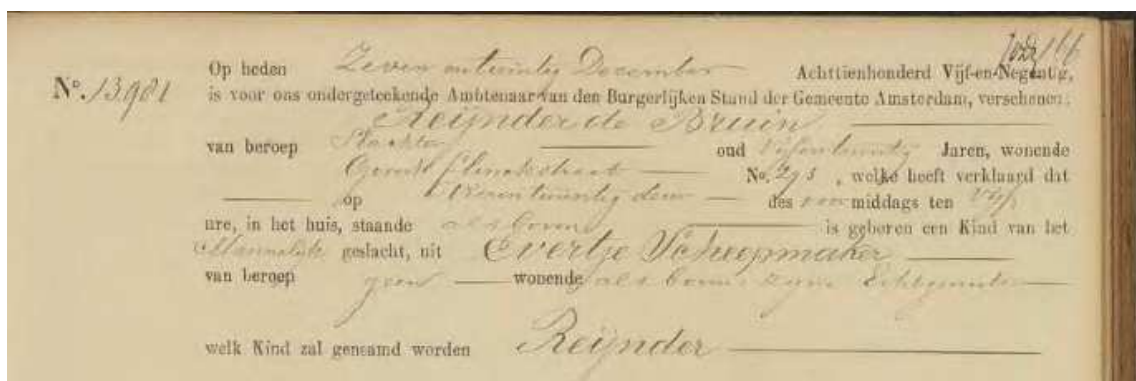 166
Op heden Zeven en twintig December Achttienhonderd Vijf-en-Negentig,
No. 13981
is voor ons ondergeteekende Ambtenaar van den Burgerlijken Stand der Gemeente Amsterdam, verschenen:
Reijnder de Bruin
van beroep Slachter oud Vijfentwintig Jaren, wonende
Gerard Flinckstraat No. 295, welke heeft verklaard dat
op Vierentwintig dezer des voor middags ten Vijf
ure, in het huis, staande als boven is geboren een Kind van het
Mannelijk geslacht, uit Evertje Scheepmaker
van beroep geen wonende als boven zijne Echtgenoote
welk Kind zal genaamd worden Reijnder